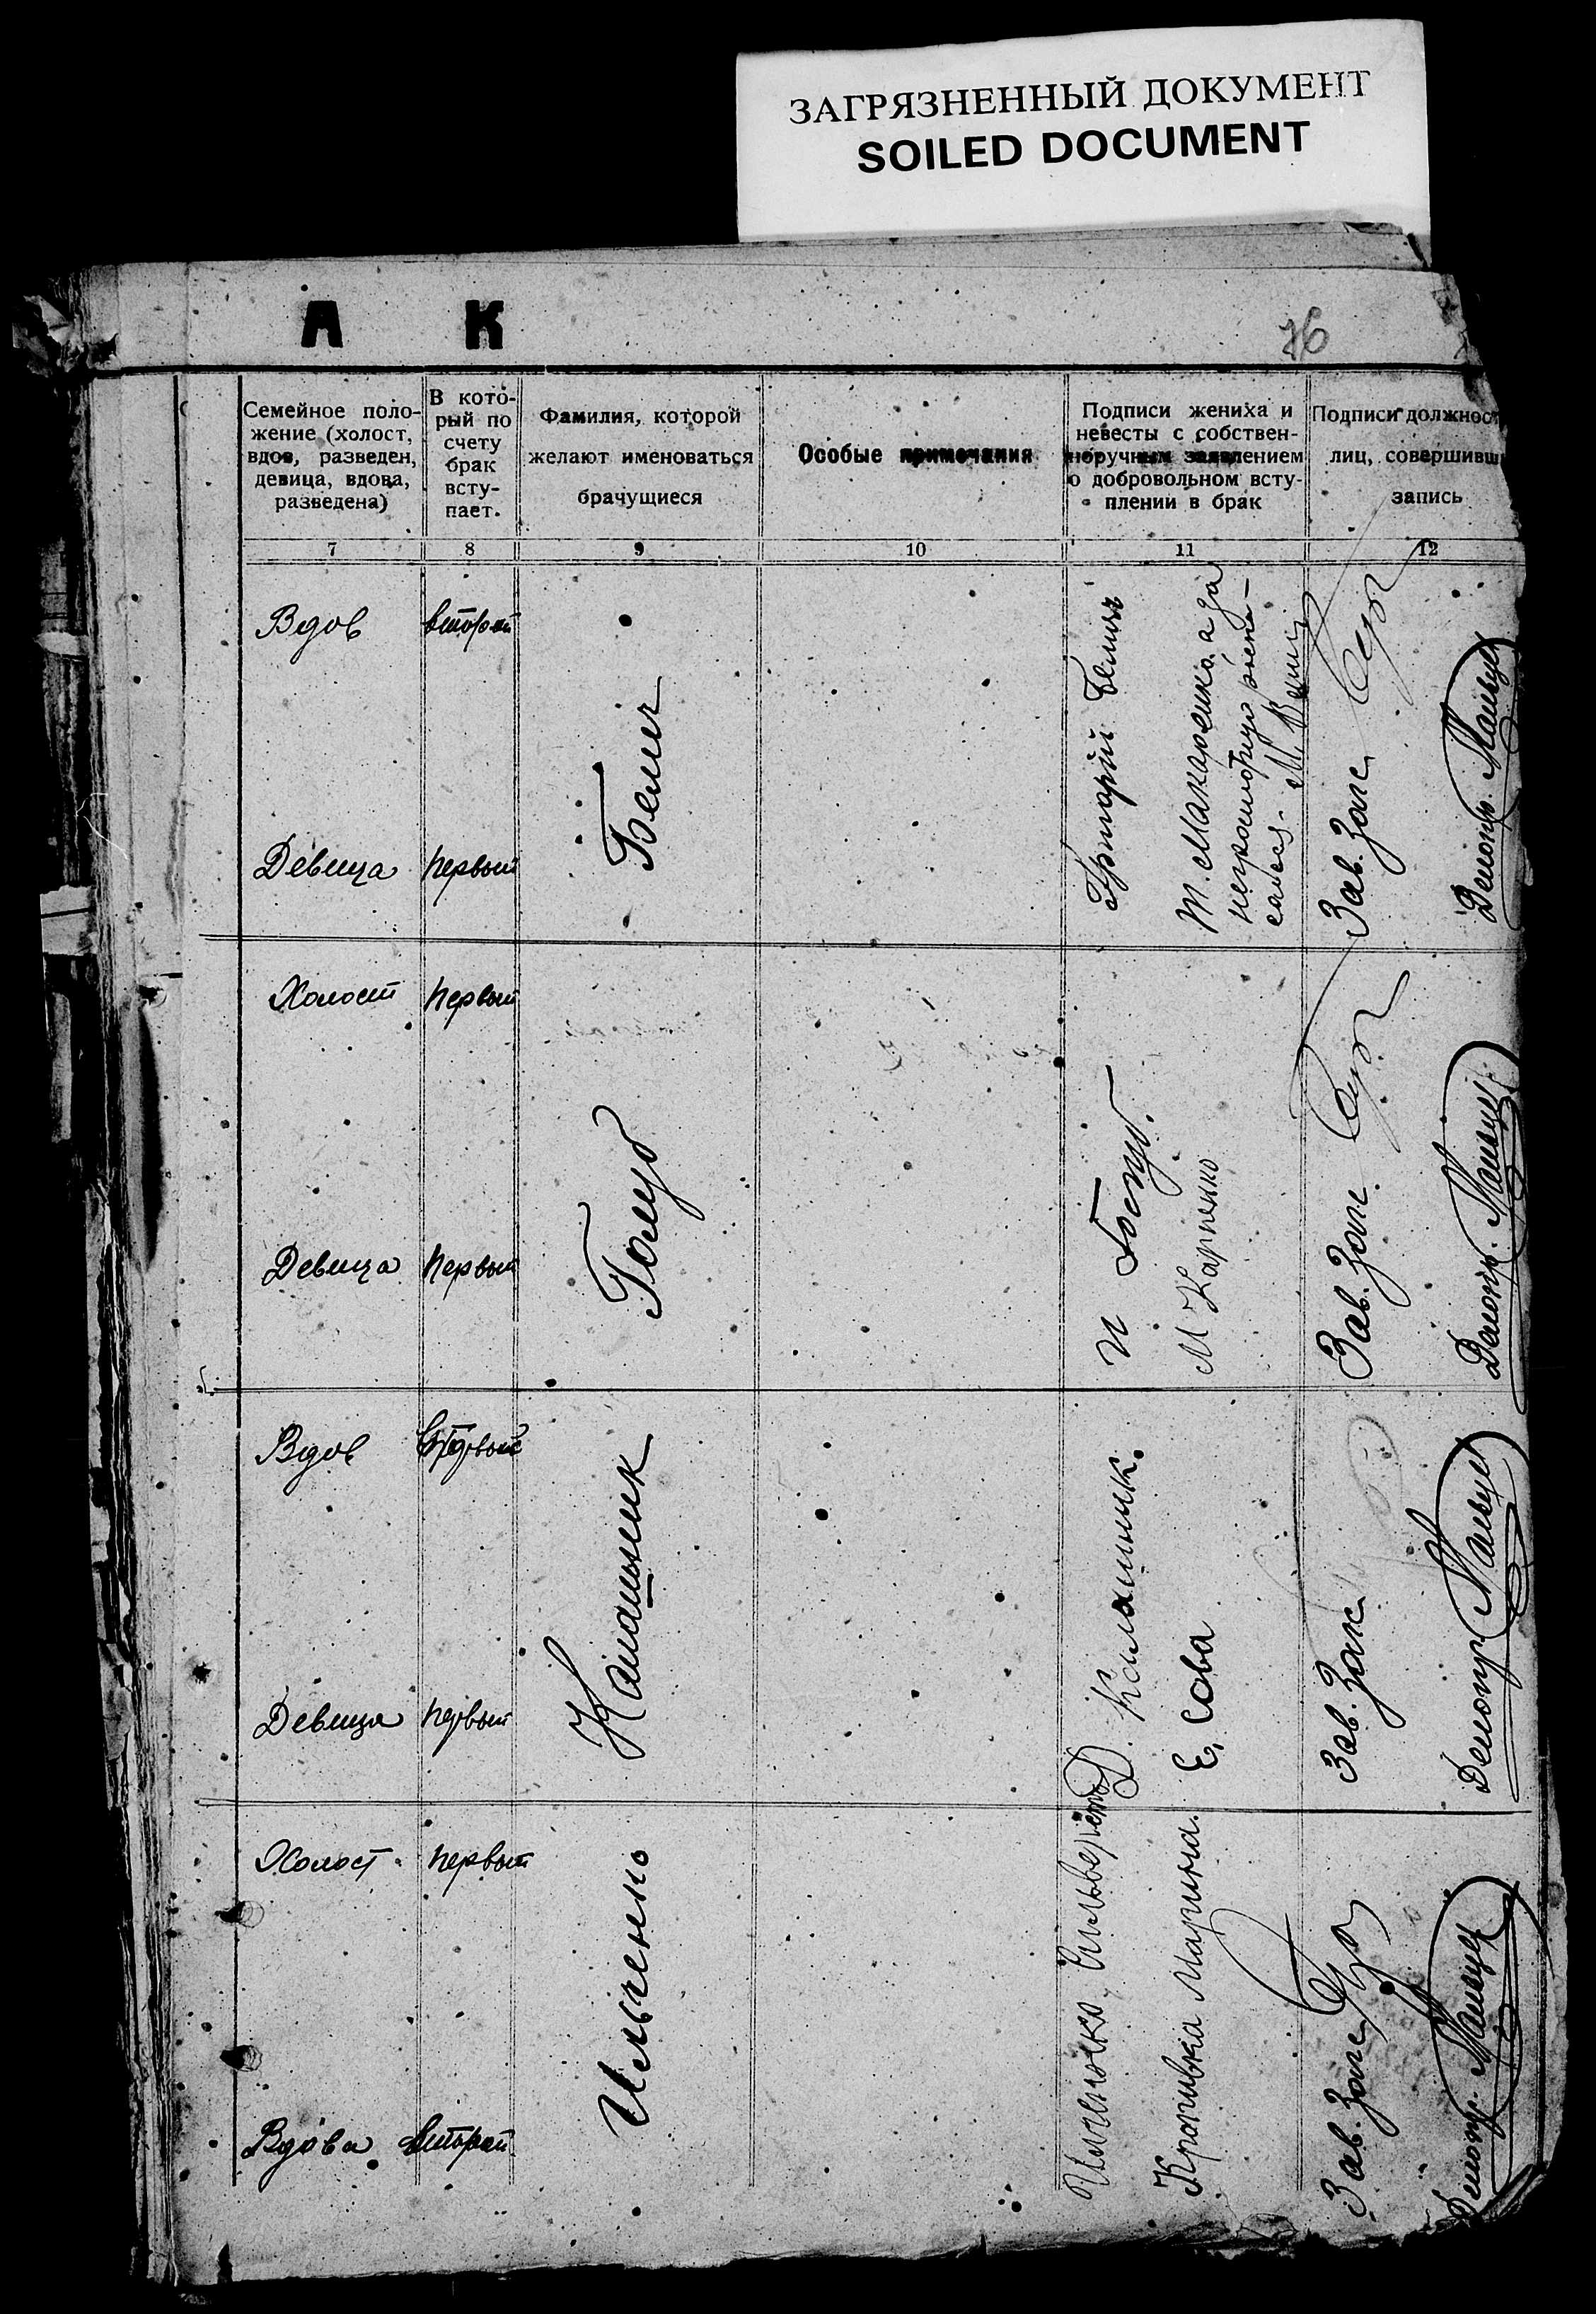 ЗАГРЯЗНЕННЫЙ ДОКУМЕНТ
SOILED DOCUMENT
А К
76
Семейное поло-
жение (холост,
вдов, разведен,
девица, вдова,
разведена)
В кото-
рый по
счету
брак
всту-
пает.
Фамилия, которой
желают именоваться
брачущиеся
Особые примечания
Подписи жениха и
невесты с собствен-
норучным заявлением
о добровольном всту-
плении в брак
Подписи должност
лиц, совершивш
запись
7
8
9
10
11
12
Вдов
второй
Девица
первый
Белич
Григорій Белич
М. Макаренко а за
неграмотную
М.
Зав. Загс
Делопр.
Холост
первый
Девица
первый
Голуб
И Голуб.
М Карпенко
Зав. Загс
Делопр.
Вдов
Девица
первый
Калашник
Д. Калашник.
Е. Сова
Зав. Загс
Делопр.
Холост
первый
Вдова
второй
Ильченко
Ильченко Сильверст
Кропивка Марина.
Зав. Загс
Делопр.